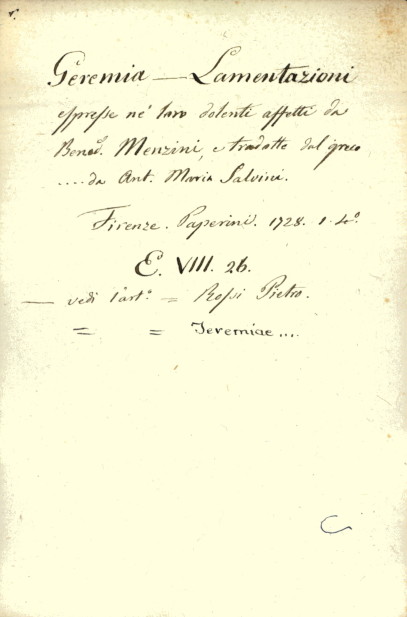 Geremia — Lamentazioni
espresse ne' loro dolenti affetti da
Bened. Menzini, e tradotte dal greco
.... da Ant. Maria Salvini.
Firenze. Paperini. 1728. 1. 4°.
E. VIII. 26.
— vedi l'art.° = Rossi Pietro.
= = Jeremiae ....